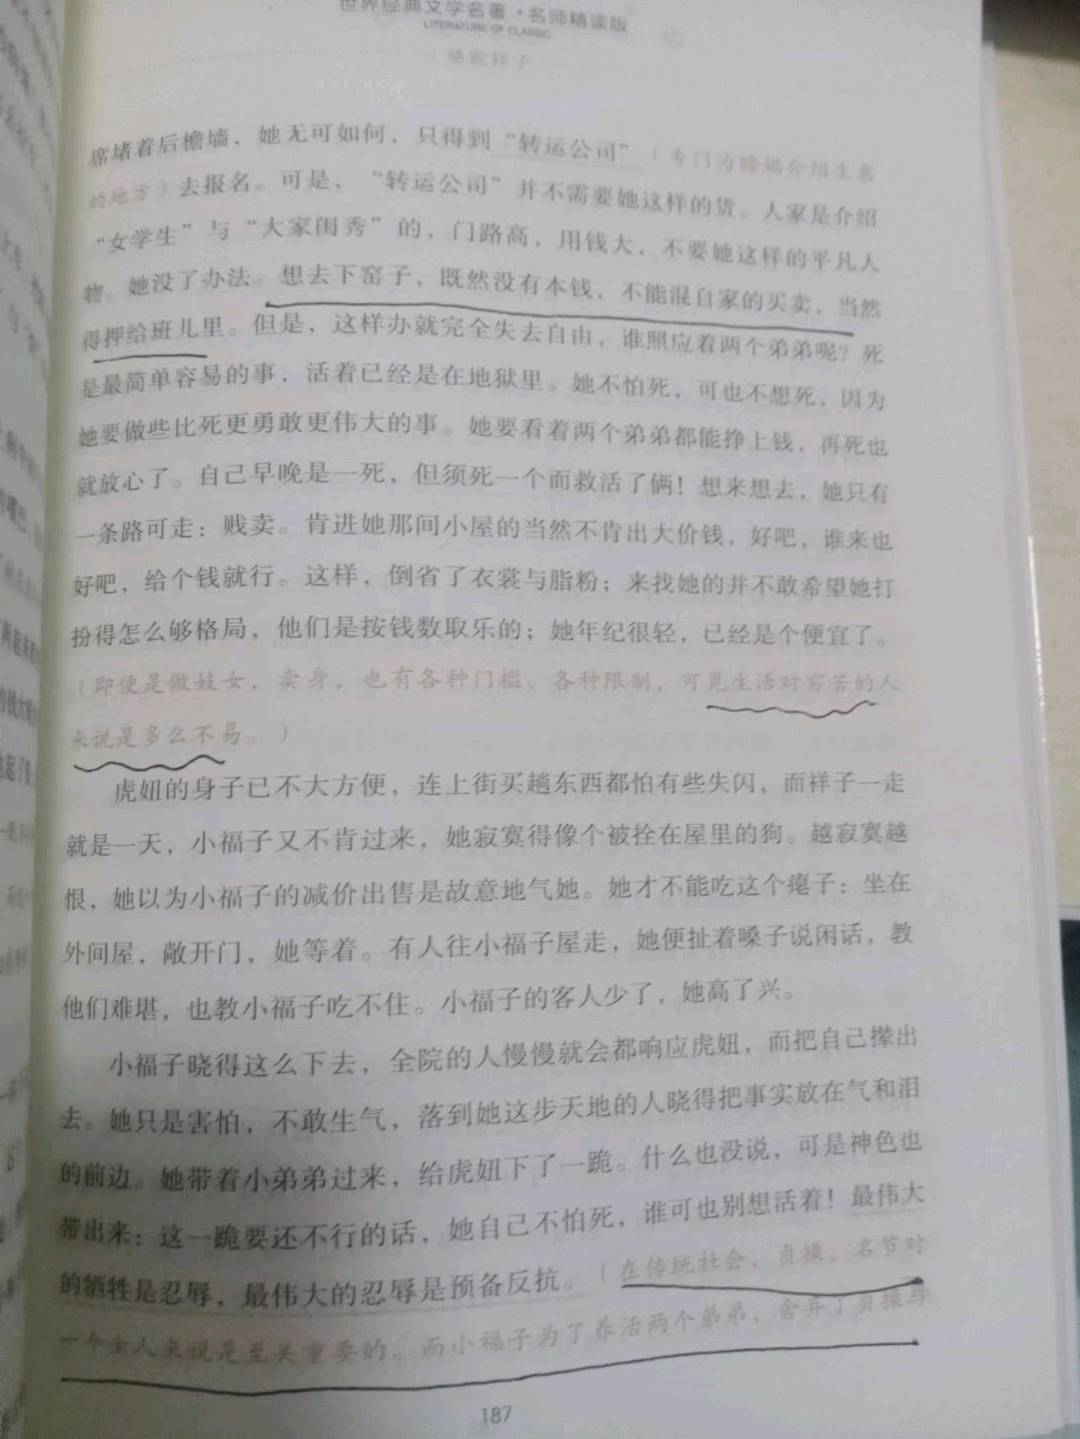 世界经典文学名著·名师精读版
LITERATURE OF CLASSIC
骆驼祥子
席堵着后檐墙，她无可如何，只得到“转运公司”（专门为暗娼介绍生意
的地方）去报名。可是，“转运公司”并不需要她这样的货。人家是介绍
“女学生”与“大家闺秀”的，门路高，用钱大，不要她这样的平凡人
物。她没了办法。想去下窑子，既然没有本钱，不能混自家的买卖，当然
得押给班儿里。但是，这样办就完全失去自由，谁照应着两个弟弟呢？死
是最简单容易的事，活着已经是在地狱里。她不怕死，可也不想死，因为
她要做些比死更勇敢更伟大的事。她要看着两个弟弟都能挣上钱，再死也
就放心了。自己早晚是一死，但须死一个而救活了俩！想来想去，她只有
一条路可走：贱卖。肯进她那间小屋的当然不肯出大价钱，好吧，谁来也
好吧，给个钱就行。这样，倒省了衣裳与脂粉；来找她的并不敢希望她打
扮得怎么够格局，他们是按钱数取乐的；她年纪很轻，已经是个便宜了。
（即便是做妓女，卖身，也有各种门槛、各种限制，可见生活对穷苦的人
来说是多么不易。）
虎妞的身子已不大方便，连上街买趟东西都怕有些失闪，而祥子一走
就是一天，小福子又不肯过来，她寂寞得像个被拴在屋里的狗。越寂寞越
恨，她以为小福子的减价出售是故意地气她。她才不能吃这个瘪子：坐在
外间屋，敞开门，她等着。有人往小福子屋走，她便扯着嗓子说闲话，教
他们难堪，也教小福子吃不住。小福子的客人少了，她高了兴。
小福子晓得这么下去，全院的人慢慢就会都响应虎妞，而把自己撵出
去。她只是害怕，不敢生气，落到她这步天地的人晓得把事实放在气和泪
的前边。她带着小弟弟过来，给虎妞下了一跪。什么也没说，可是神色也
带出来：这一跪要还不行的话，她自己不怕死，谁可也别想活着！最伟大
的牺牲是忍辱，最伟大的忍辱是预备反抗。（在传统社会，贞操、名节对
一个女人来说是至关重要的。而小福子为了养活两个弟弟，舍弃了贞操与
187